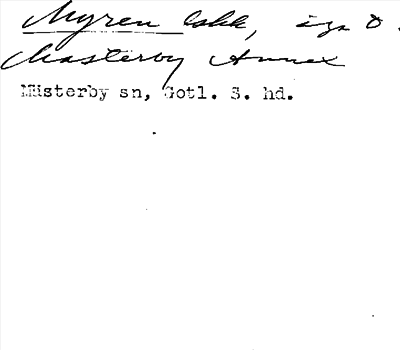 Myren
Masterby Annex
Mästerby sn, Gotl. S. hd.